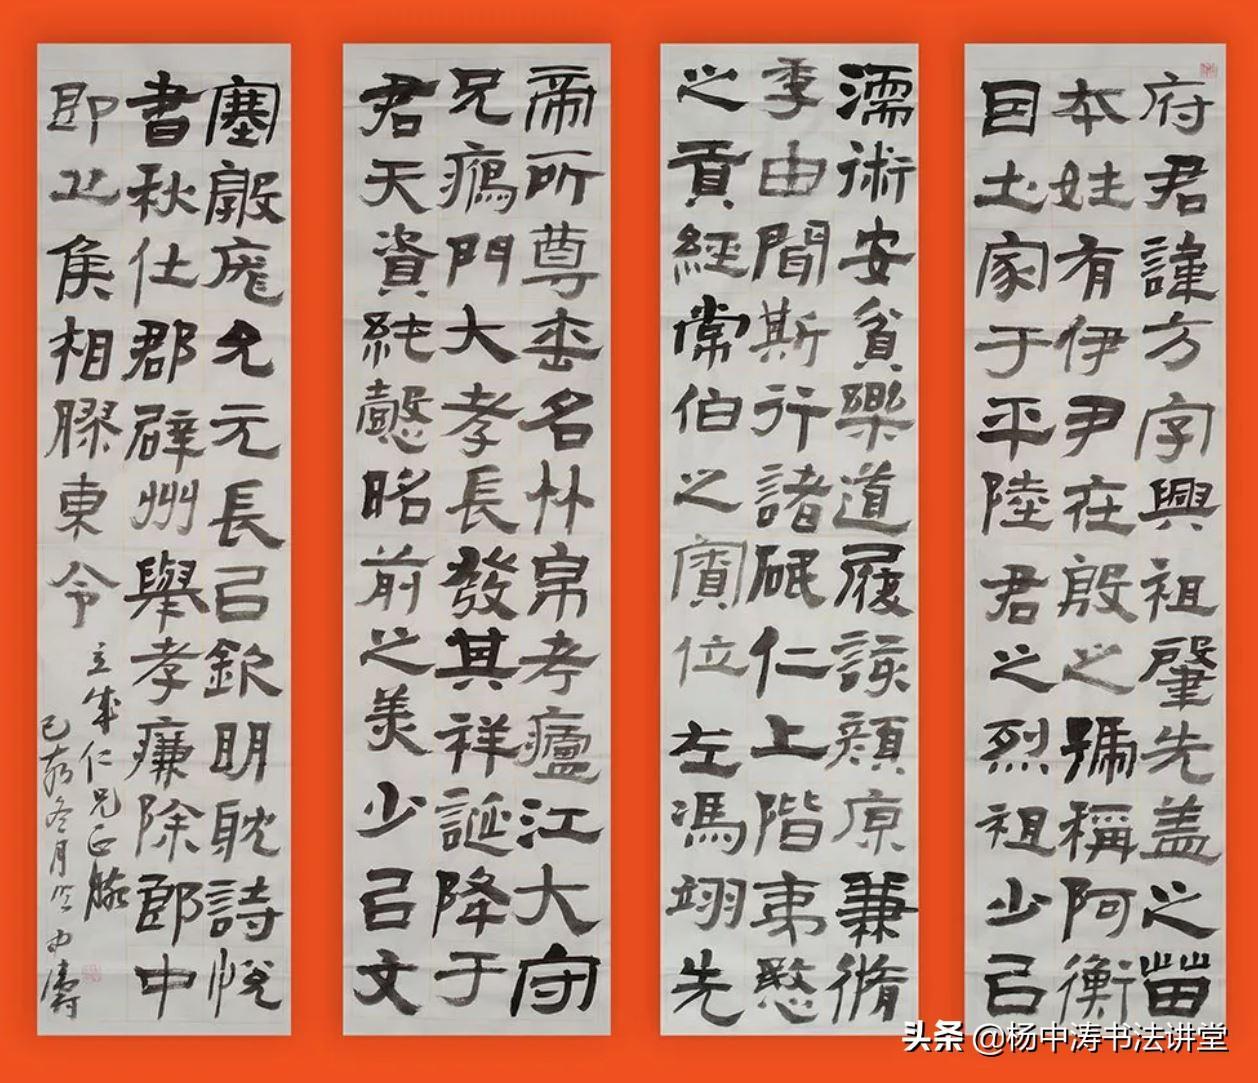 府君諱方字興祖肇先蓋之苗
本姓有伊尹在殷之號稱阿衡
因土家于平陸君之烈祖少以
濡術安貧樂道履該顏原兼脩
季由聞斯行諸砥仁上階夷愍
之貢經常伯之寮位左馮翊先
帝所尊垂名竹帛考廬江大守
兄鴈門大孝長發其祥誕降于
君天資純懿昭前之美少以文
塞敦庬允元長以欽明耽詩悅
書秋仕郡辟州舉孝廉除郎中
即丘侯相膠東令
立成仁兄正腕
己亥冬月中濤
头条 @杨中涛书法讲堂